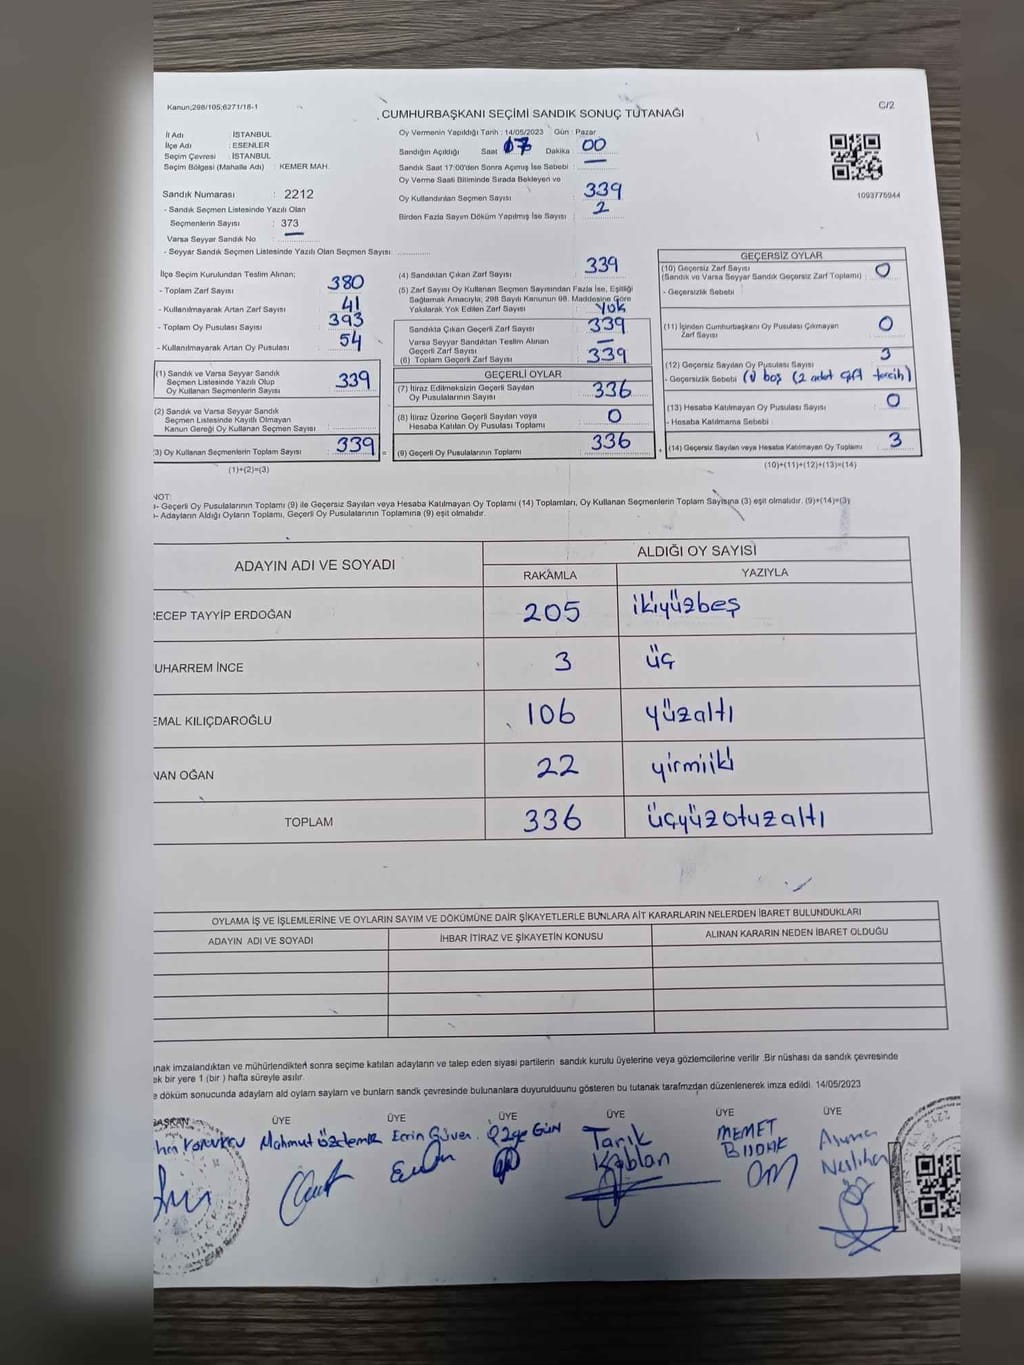 Kanun;298/105;6271/18-1
C/2
CUMHURBAŞKANI SEÇİMİ SANDIK SONUÇ TUTANAĞI
İl Adı : İSTANBUL
İlçe Adı : ESENLER
Seçim Çevresi : İSTANBUL
Seçim Bölgesi (Mahalle Adı) : KEMER MAH.
Sandık Numarası : 2212
- Sandık Seçmen Listesinde Yazılı Olan
Seçmenlerin Sayısı : 373
Varsa Seyyar Sandık No :
- Seyyar Sandık Seçmen Listesinde Yazılı Olan Seçmen Sayısı
Oy Vermenin Yapıldığı Tarih : 14/05/2023 Gün : Pazar
Sandığın Açıldığı Saat 17 Dakika 00
Sandık Saat 17:00'den Sonra Açımış İse Sebebi :
Oy Verme Saati Bitiminde Sırada Bekleyen ve
Oy Kullandırılan Seçmen Sayısı 339
Birden Fazla Sayım Döküm Yapılmış İse Sayısı 2
1093775944
İlçe Seçim Kurulundan Teslim Alınan;
- Toplam Zarf Sayısı 380
- Kullanılmayarak Artan Zarf Sayısı 41
- Toplam Oy Pusulası Sayısı 393
- Kullanılmayarak Artan Oy Pusulası 54
(1) Sandık ve Varsa Seyyar Sandık
Seçmen Listesinde Yazılı Olup
Oy Kullanan Seçmenlerin Sayısı 339
(2) Sandık ve Varsa Seyyar Sandık
Seçmen Listesinde Kayıtlı Olmayan
Kanun Gereği Oy Kullanan Seçmen Sayısı
3) Oy Kullanan Seçmenlerin Toplam Sayısı 339 =
(1)+(2)=(3)
(4) Sandıktan Çıkan Zarf Sayısı 339
(5) Zarf Sayısı Oy Kullanan Seçmen Sayısından Fazla İse, Eşitliği
Sağlamak Amacıyla; 298 Sayılı Kanunun 98. Maddesine Göre
Yakılarak Yok Edilen Zarf Sayısı Yok
Sandıkta Çıkan Geçerli Zarf Sayısı 339
Varsa Seyyar Sandıktan Teslim Alınan
Geçerli Zarf Sayısı —
(6) Toplam Geçerli Zarf Sayısı 339
GEÇERLİ OYLAR
(7) İtiraz Edilmeksizin Geçerli Sayılan
Oy Pusulalarının Sayısı 336
(8) İtiraz Üzerine Geçerli Sayılan veya
Hesaba Katılan Oy Pusulası Toplamı 0
(9) Geçerli Oy Pusulalarının Toplamı 336
GEÇERSİZ OYLAR
(10) Geçersiz Zarf Sayısı 0
(Sandık ve Varsa Seyyar Sandık Geçersiz Zarf Toplamı)
- Geçersizlik Sebebi
(11) İçinden Cumhurbaşkanı Oy Pusulası Çıkmayan
Zarf Sayısı 0
(12) Geçersiz Sayılan Oy Pusulası Sayısı 3
- Geçersizlik Sebebi (1) boş (2 adet çift tercih)
(13) Hesaba Katılmayan Oy Pusulası Sayısı 0
- Hesaba Katılmama Sebebi :
+ (14) Geçersiz Sayılan veya Hesaba Katılmayan Oy Toplamı 3
(10)+(11)+(12)+(13)=(14)
NOT:
- Geçerli Oy Pusulalarının Toplamı (9) ile Geçersiz Sayılan veya Hesaba Katılmayan Oy Toplamı (14) Toplamları, Oy Kullanan Seçmenlerin Toplam Sayısına (3) eşit olmalıdır. (9)+(14)=(3)
- Adayların Aldığı Oyların Toplamı, Geçerli Oy Pusulalarının Toplamına (9) eşit olmalıdır.
ADAYIN ADI VE SOYADI
ALDIĞI OY SAYISI
RAKAMLA YAZIYLA
ECEP TAYYİP ERDOĞAN 205 ikiyüzbeş
UHARREM İNCE 3 üç
EMAL KILIÇDAROĞLU 106 yüzaltı
NAN OĞAN 22 yirmiiki
TOPLAM 336 üçyüzotuzaltı
OYLAMA İŞ VE İŞLEMLERİNE VE OYLARIN SAYIM VE DÖKÜMÜNE DAİR ŞİKAYETLERLE BUNLARA AİT KARARLARIN NELERDEN İBARET BULUNDUKLARI
ADAYIN ADI VE SOYADI İHBAR İTİRAZ VE ŞİKAYETİN KONUSU ALINAN KARARIN NEDEN İBARET OLDUĞU
anak imzalandıktan ve mühürlendikten sonra seçime katılan adayların ve talep eden siyasi partilerin sandık kurulu üyelerine veya gözlemcilerine verilir .Bir nüshası da sandık çevresinde
ek bir yere 1 (bir ) hafta süreyle asılır.
e döküm sonucunda adayların ald oyların sayların ve bunların sandk çevresinde bulunanlara duyurulduunu gösteren bu tutanak tarafmzdan düzenlenerek imza edildi. 14/05/2023
BAŞKAN ÜYE ÜYE ÜYE ÜYE ÜYE ÜYE
Mahmut Özdemir Emin Güven Özge GÜN Tarık Kablan MEMET BUDAK
2212